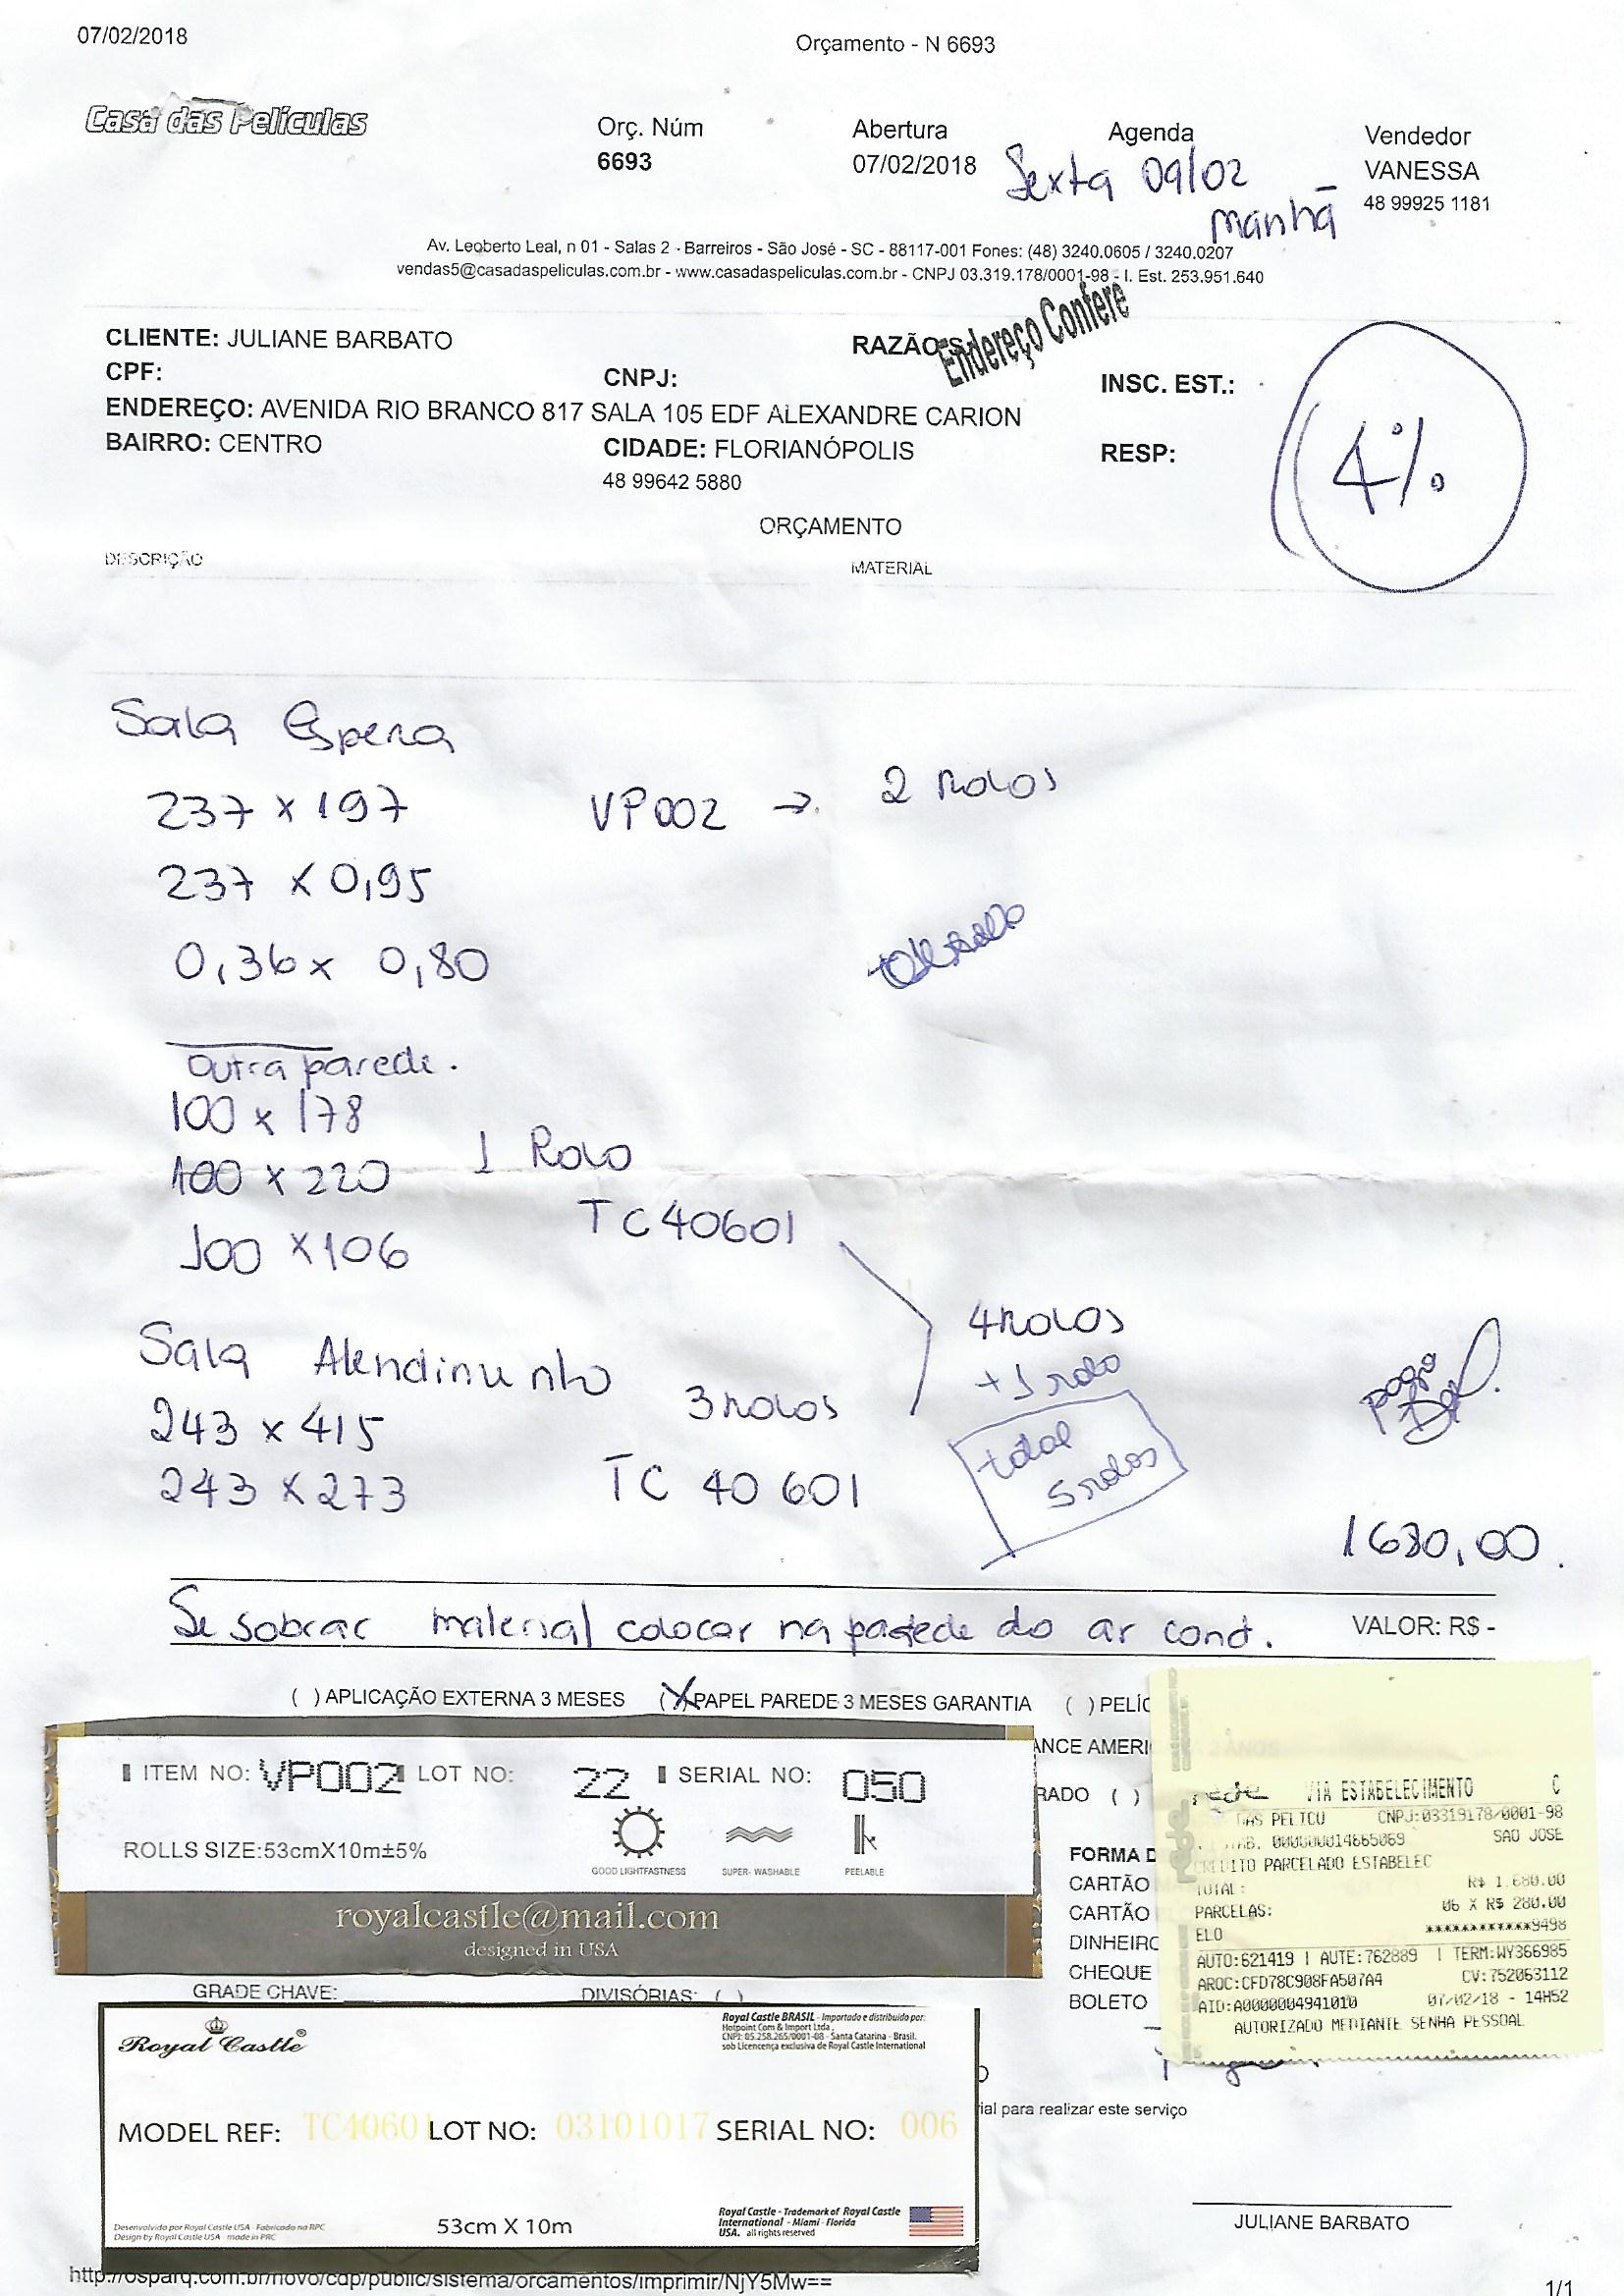 07/02/2018
Orçamento - N 6693
Casa das Películas
Orç. Núm
6693
Abertura
07/02/2018
Agenda
Sexta 09/02
manhã
Vendedor
VANESSA
48 99925 1181
Av. Leoberto Leal, n 01 - Salas 2 - Barreiros - São José - SC - 88117-001 Fones: (48) 3240.0605 / 3240.0207
vendas5@casadaspeliculas.com.br - www.casadaspeliculas.com.br - CNPJ 03.319.178/0001-98 - I. Est. 253.951.640
Endereço Confere
CLIENTE: JULIANE BARBATO
RAZÃO S
CPF:
CNPJ:
INSC. EST.:
ENDEREÇO: AVENIDA RIO BRANCO 817 SALA 105 EDF ALEXANDRE CARION
BAIRRO: CENTRO
CIDADE: FLORIANÓPOLIS
RESP:
48 99642 5880
4%
ORÇAMENTO
DESCRIÇÃO
MATERIAL
Sala Espera
237 x 197
VP002 → 2 rolos
237 x 0,95
0,36 x 0,80
Outra parede.
100 x 178
100 x 220
1 Rolo
TC40601
100 x 106
Sala Atendimento
243 x 415
3 rolos
243 x 273
TC 40 601
4 rolos
+ 1 rolo
total
5 rolos
pago
1680,00.
Se sobrar material colocar na parede do ar cond.
VALOR: R$ -
( ) APLICAÇÃO EXTERNA 3 MESES (X) PAPEL PAREDE 3 MESES GARANTIA ( ) PELÍC
ANCE AMERI
RADO ( )
ITEM NO: VP002 LOT NO: 22 SERIAL NO: 050
ROLLS SIZE:53cmX10m±5%
GOOD LIGHTFASTNESS
SUPER- WASHABLE
PEELABLE
royalcastle@mail.com
designed in USA
FORMA D
CARTÃO
CARTÃO
DINHEIRO
CHEQUE
BOLETO
rede
VIA ESTABELECIMENTO C
DAS PELICU CNPJ:03319178/0001-98
TAB. 000000014665069 SAO JOSE
CREDITO PARCELADO ESTABELEC
TOTAL: R$ 1.680.00
PARCELAS: 06 X R$ 280,00
ELO ************9498
AUTO:621419 | AUTE:762889 | TERM:WY366985
ARQC:CFD78C908FA507A4 CV:752063112
AID:A0000004941010 07/02/18 - 14H52
AUTORIZADO MEDIANTE SENHA PESSOAL
GRADE CHAVE:
DIVISÓRIAS: ( )
Royal Castle®
Royal Castle BRASIL - Importado e distribuido por:
Hotpoint Com & Import Ltda
CNPJ: 05.258.265/0001-08 - Santa Catarina - Brasil.
sob Licencença exclusiva de Royal Castle International
MODEL REF: TC40601 LOT NO: 03101017 SERIAL NO: 006
ial para realizar este serviço
Desenvolvido por Royal Castle USA - Fabricado na RPC
Design by Royal Castle USA - made in PRC
53cm X 10m
Royal Castle - Trademark of Royal Castle
International - Miami - Florida
USA. all rights reserved
JULIANE BARBATO
http://osparq.com.br/novo/cdp/public/sistema/orcamentos/imprimir/NjY5Mw==
1/1